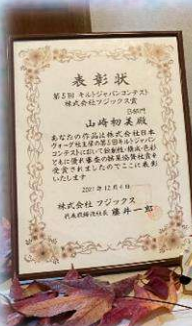 表彰状
第5回 キルトジャパンコンテスト
株式会社フジックス賞
山﨑初美殿
あなたの作品は株式会社日本
ヴォーグ社主催の第5回キルトジャパン
コンテストにおいて
受賞されましたのでここに表彰
いたします
株式会社 フジックス
代表取締役社長 藤井一郎